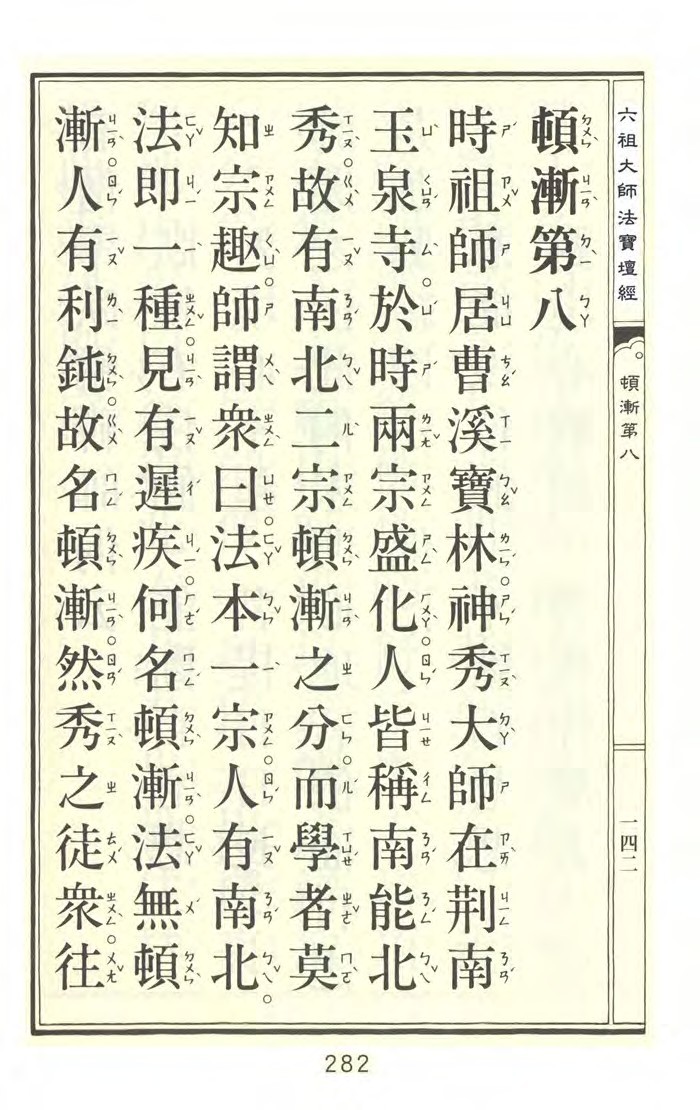 六祖大師法寶壇經
頓漸第八
一四二
頓漸第八
時祖師居曹溪寶林神秀大師在荆南
玉泉寺於時兩宗盛化人皆稱南能北
秀故有南北二宗頓漸之分而學者莫
知宗趣師謂衆曰法本一宗人有南北
法即一種見有遲疾何名頓漸法無頓
漸人有利鈍故名頓漸然秀之徒衆往
282